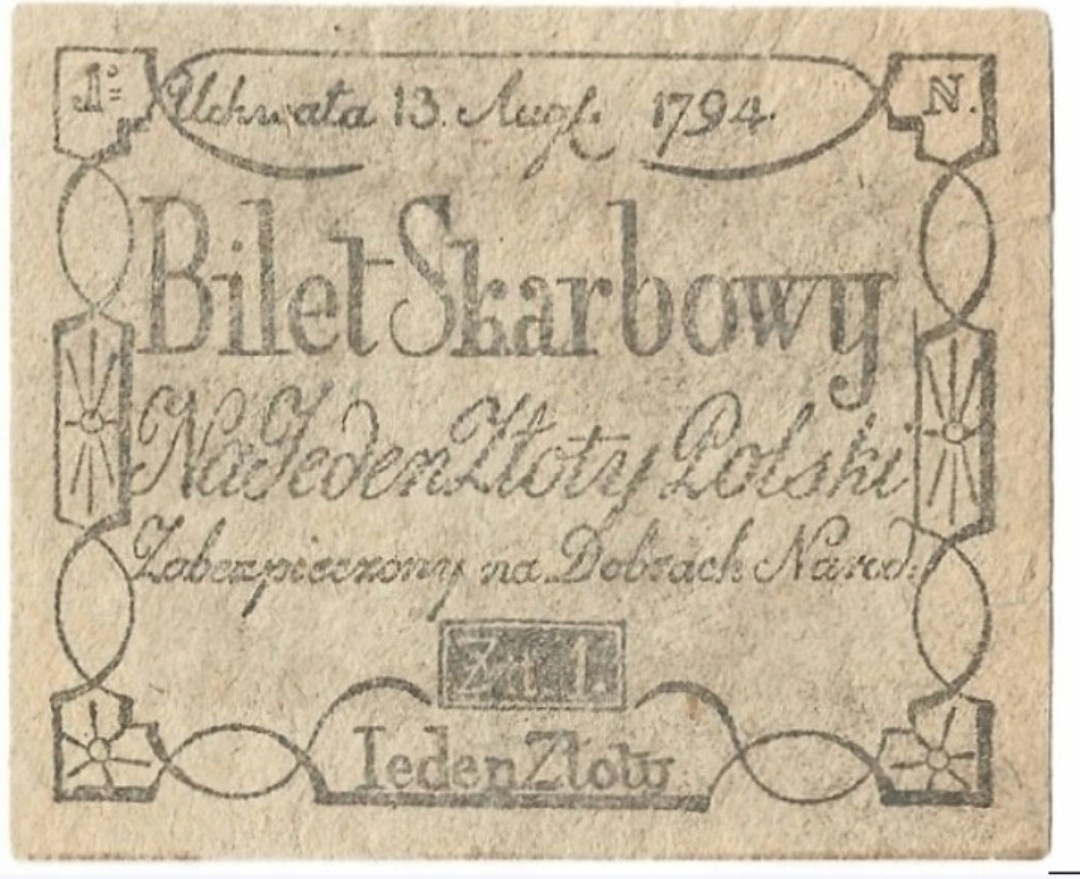 1: Uchwała 13. Augs. 1794. N.
Bilet Skarbowy
Na Jeden Złoty Polski
Zabezpieczony na Dobrach Narod:
Zł: 1.
Ieden Złoty